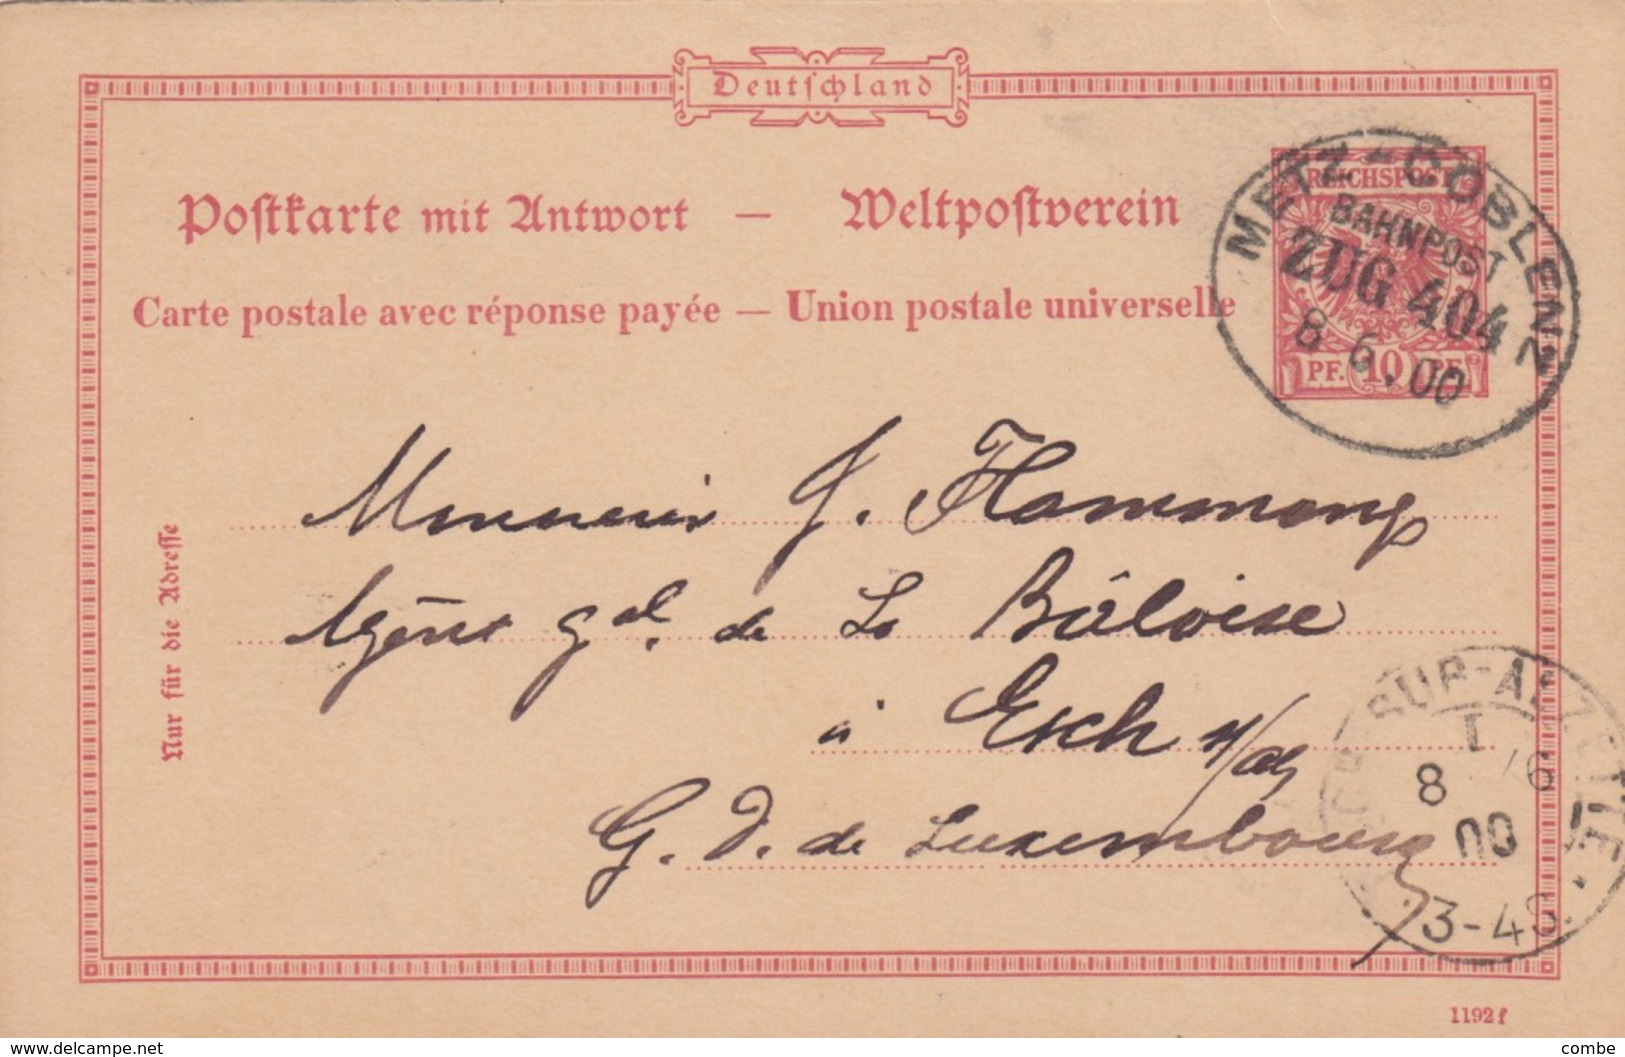 Deutschland
Postkarte mit Antwort — Weltpostverein
Carte postale avec réponse payée — Union postale universelle
REICHSPOST
PF. 10 PF.
METZ-COBLENZ
BAHNPOST
ZUG 404
8 6.00
Nur für die Adresse
Monsieur J. Hammong
Agent gal. de La Bâloise
à Esch s/Alz
G. D. de Luxembourg
SUR-ALZETTE
8 6
00
3-4S
1192 f
www.delcampe.net
combe